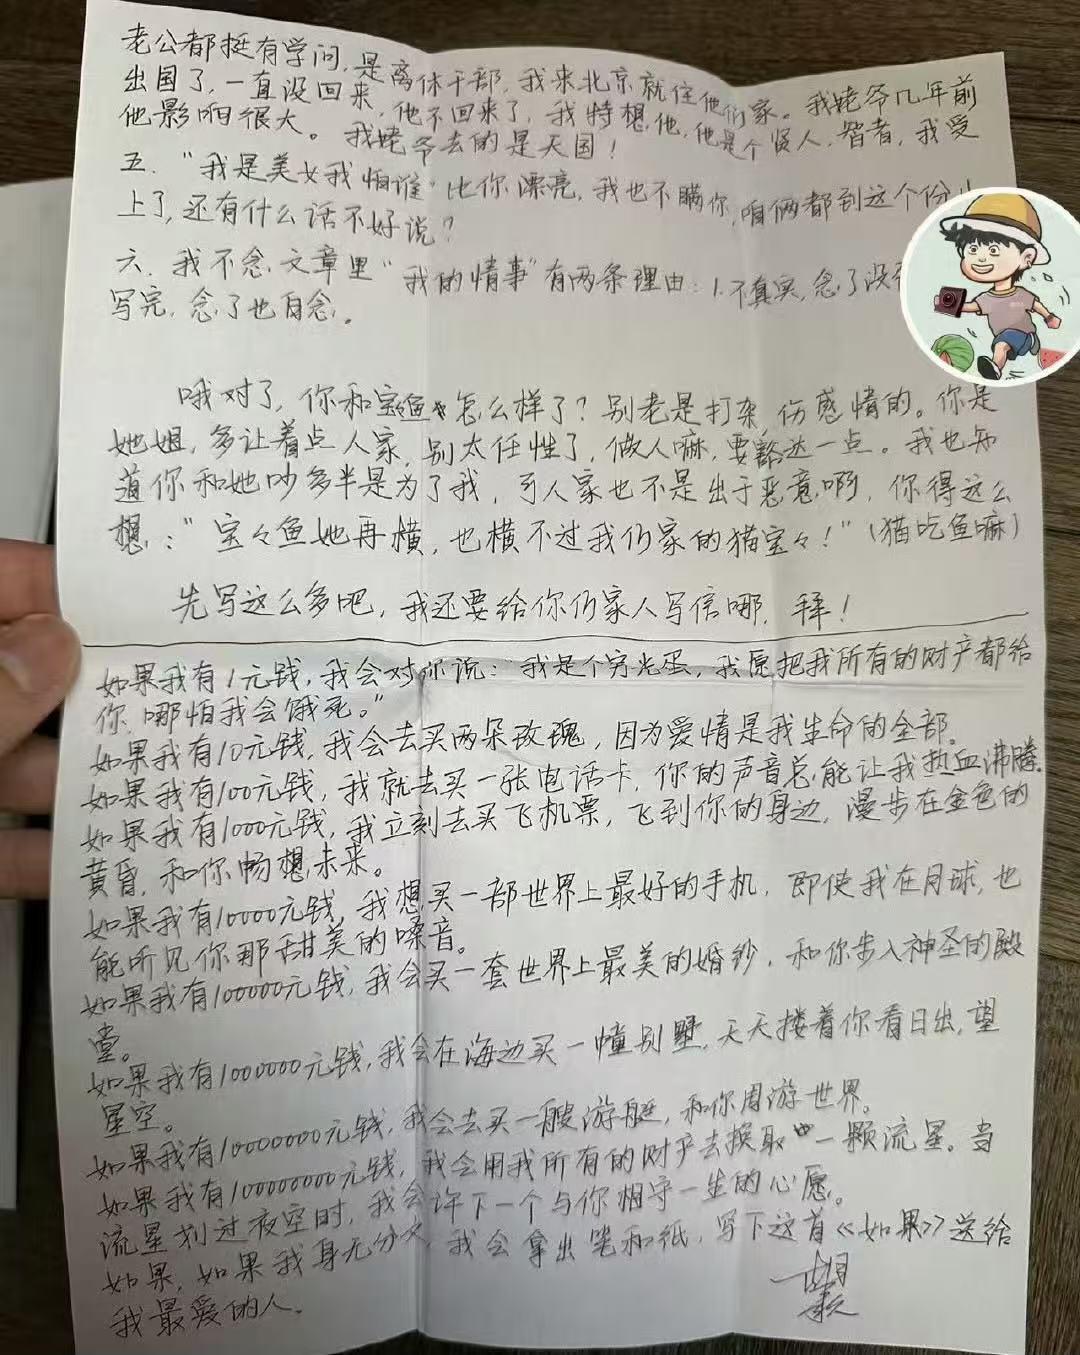 老公都挺有学问,是离休干部,我来北京就住他们家。我姥爷几年前
出国了,一直没回来,他不回来了,我特想他,他是个贤人,智者,我受
他影响很大。我姥爷去的是天国!
五."我是美女我怕谁"比你漂亮,我也不瞒你,咱俩都到这个份
上了,还有什么话不好说?
六.我不念文章里"我的情事"有两条理由:1.不真实,念了没
写完,念了也自念。
哦对了,你和宝鱼怎么样了?别老是打杂,伤感情的。你是
她姐,多让着点人家,别太任性了,做人嘛,要豁达一点。我也知
道你和她吵多半是为了我,可人家也不是出于恶意啊,你得这么
想:"宝々鱼她再横,也横不过我们家的猫宝々!"(猫吃鱼嘛)
先写这么多吧,我还要给你们家人写信哪,拜!
如果我有1元钱,我会对你说:"我是个穷光蛋,我愿把我所有的财产都给
你,哪怕我会饿死。"
如果我有10元钱,我会去买两朵玫瑰,因为爱情是我生命的全部。
如果我有100元钱,我就去买一张电话卡,你的声音总能让我热血沸腾。
如果我有1000元钱,我立刻去买飞机票,飞到你的身边,漫步在金色的
黄昏,和你畅想未来。
如果我有10000元钱,我想买一部世界上最好的手机,即使我在月球,也
能听见你那甜美的嗓音。
如果我有100000元钱,我会买一套世界上最美的婚纱,和你步入神圣的殿
堂。
如果我有1000000元钱,我会在海边买一幢别墅,天天搂着你看日出,望
星空。
如果我有10000000元钱,我会去买一艘游艇,和你周游世界。
如果我有100000000元钱,我会用我所有的财产去换取一颗流星。当
流星划过夜空时,我会许下一个与你相守一生的心愿。
如果,如果我身无分文,我会拿出笔和纸,写下这首《如果》送给
我最爱的人。